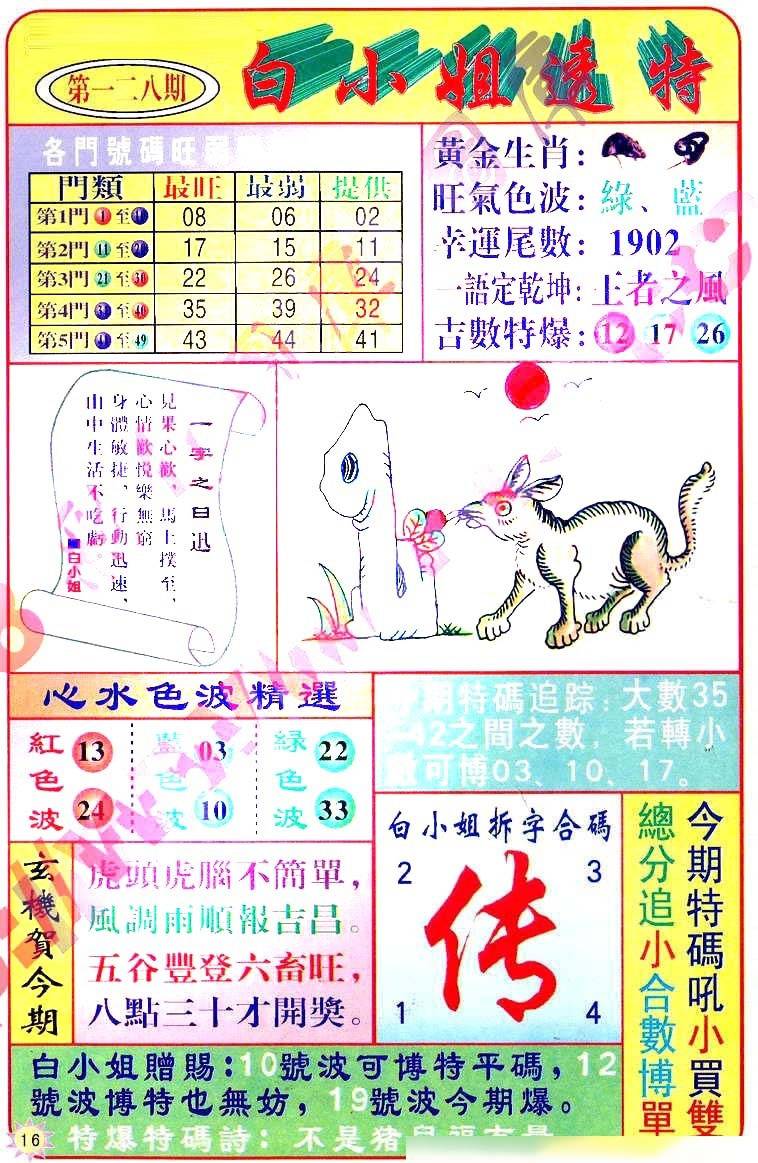 第一二八期
白小姐透特
各門號碼旺
門類 最旺 最弱 提供
第1門 1 至 08 06 02
第2門 11 至 17 15 11
第3門 21 至 30 22 26 24
第4門 至 40 35 39 32
第5門 41 至 49 43 44 41
黃金生肖：
旺氣色波：綠、藍
幸運尾數：1902
一語定乾坤：王者之風
吉數特爆：12 17 26
一字之曰迅
見果心歡，馬上撲至，
心情歡悅樂無窮
身體敏捷，行動迅速，
山中生活不吃虧。
白小姐
心水色波精選
紅色波 13 24
藍色波 03 10
綠色波 22 33
期特碼追踪：大數35
-42之間之數，若轉小
數可博03、10、17。
玄機賀今期
虎頭虎腦不簡單，
風調雨順報吉昌。
五谷豐登六畜旺，
八點三十才開獎。
白小姐拆字合碼
2 3
传
1 4
今期特碼吼小買雙
總分追小合數博單
白小姐贈賜：10號波可博特平碼，12
號波博特也無妨，19號波今期爆。
特爆特碼詩：不是猪
16